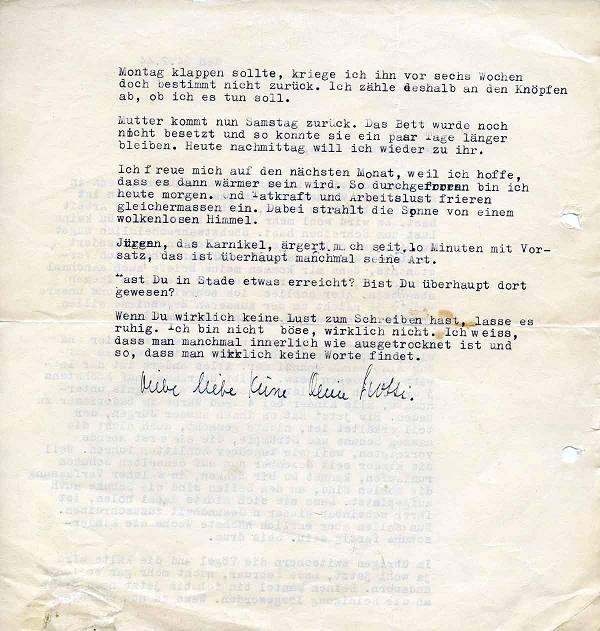 Montag klappen sollte, kriege ich ihn vor sechs Wochen
doch bestimmt nicht zurück. Ich zähle deshalb an den Knöpfen
ab, ob ich es tun soll.
Mutter kommt nun Samstag zurück. Das Bett wurde noch
nicht besetzt und so konnte sie ein paar Tage länger
bleiben. Heute nachmittag will ich wieder zu ihr.
Ich freue mich auf den nächsten Monat, weil ich hoffe,
dass es dann wärmer sein wird. So durchgefroren bin ich
heute morgen. Und Tatkraft und Arbeitslust frieren
gleichermassen ein. Dabei strahlt die Sonne von einem
wolkenlosen Himmel.
Jürgen, das Karnikel, ärgert mich seit 10 Minuten mit Vor-
satz, das ist überhaupt manchmal seine Art.
Hast Du in Stade etwas erreicht? Bist Du überhaupt dort
gewesen?
Wenn Du wirklich keine Lust zum Schreiben hast, lasse es
ruhig. Ich bin nicht böse, wirklich nicht. Ich weiss,
dass man manchmal innerlich wie ausgetrocknet ist und
so, dass man wirklich keine Worte findet.
liebe Deine